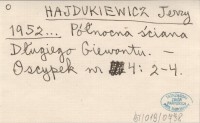 HAJDUKIEWICZ Jerzy
1952... Północna ściana
Długiego Giewontu. —
Oscypek nr 4: 2-4.